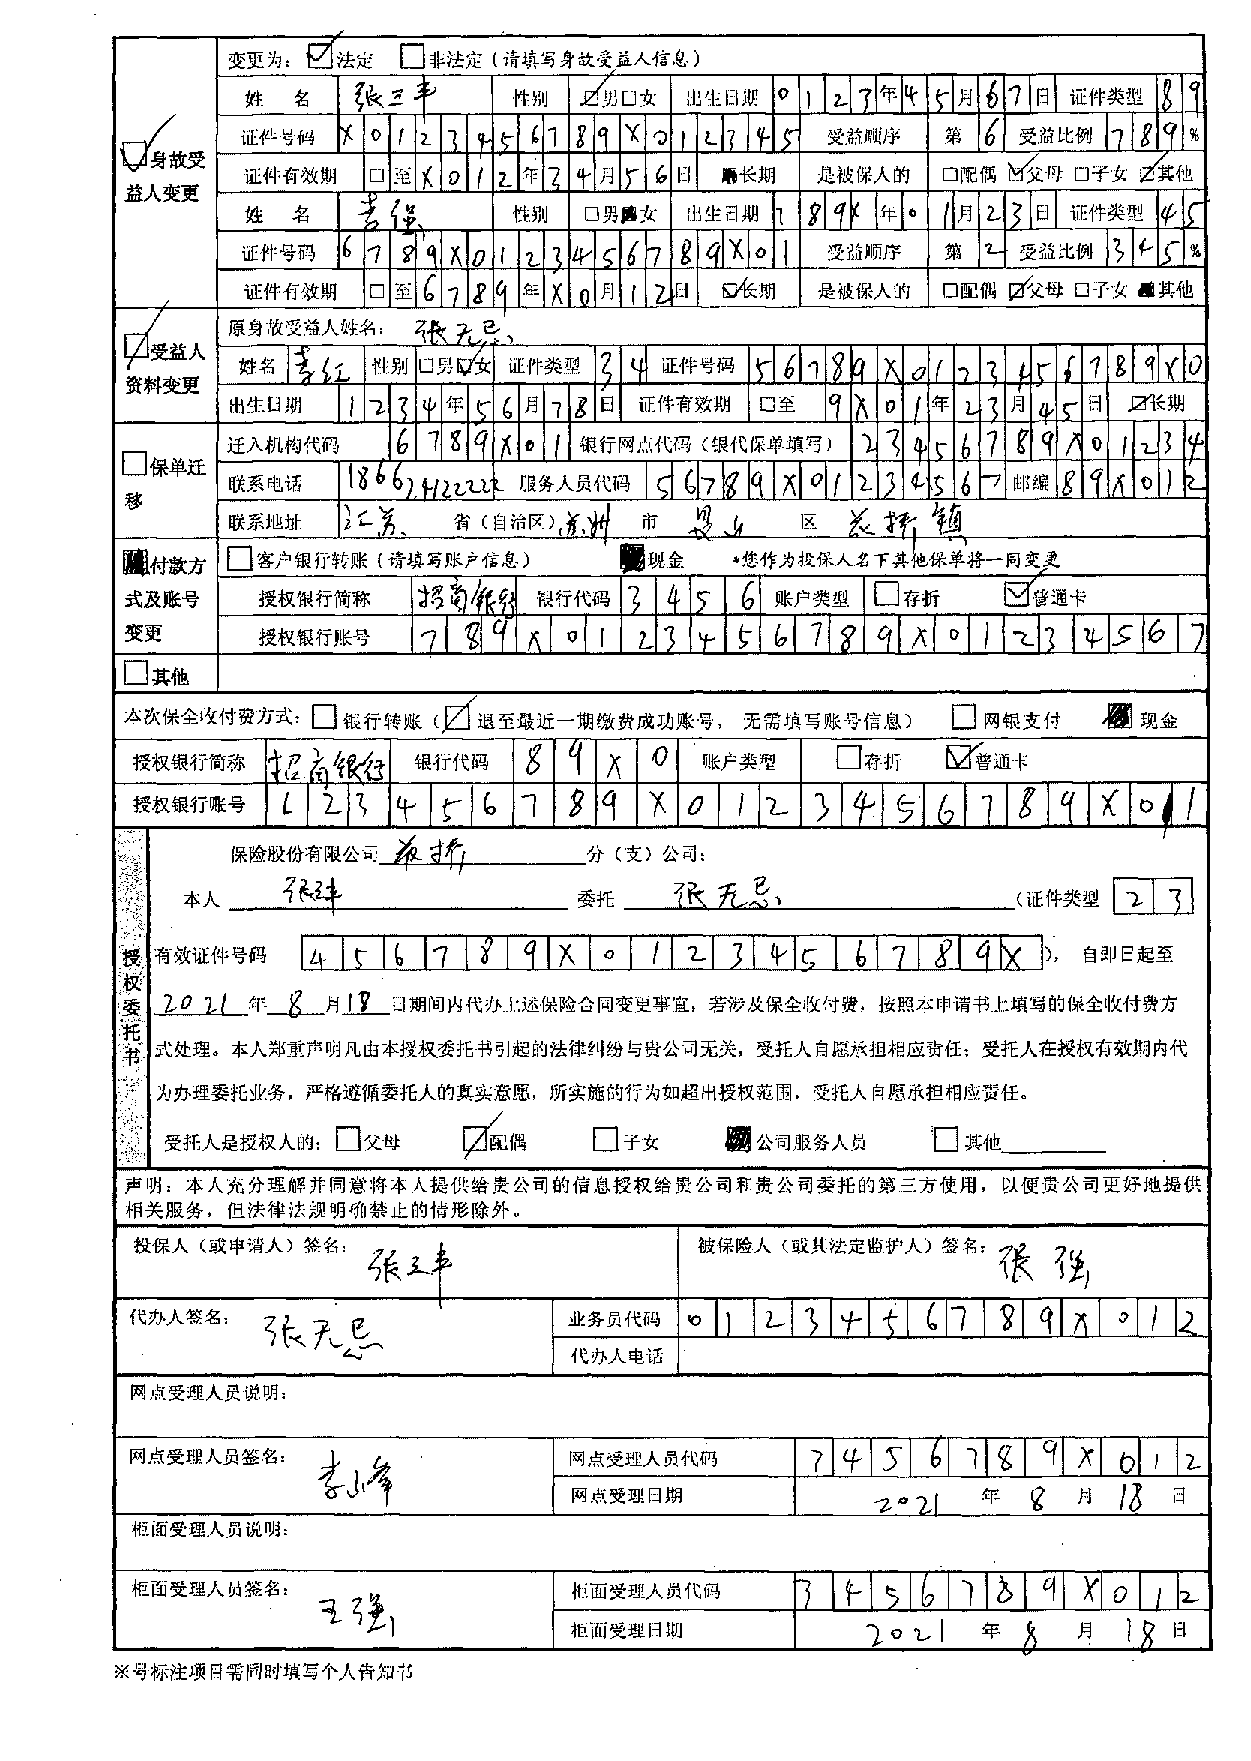 变更为：☑法定 □非法定（请填写身故受益人信息）
☑身故受益人变更
姓 名 张三丰 性别 ☑男□女 出生日期 0123年45月67日 证件类型 89
证件号码 X0123456789X012345 受益顺序 第6 受益比例 789%
证件有效期 □至X012年34月56日 ■长期 是被保人的 □配偶 ☑父母 □子女 ☑其他
姓 名 李强 性别 □男■女 出生日期 789X年01月23日 证件类型 45
证件号码 6789X0123456789X01 受益顺序 第2 受益比例 345%
证件有效期 □至6789年X0月12日 ☑长期 是被保人的 □配偶 ☑父母 □子女 ■其他
☑受益人资料变更
原身故受益人姓名：张无忌
姓名 李红 性别 □男☑女 证件类型 34 证件号码 56789X0123456789X0
出生日期 1234年56月78日 证件有效期 □至 9X01年23月45日 ☑长期
□保单迁移
迁入机构代码 6789X01 银行网点代码（银代保单填写）23456789X01234
联系电话 服务人员代码 56789X01234567 邮编 89X012
联系地址 江苏 省（自治区）苏州 市 昆山 区 镇
■付款方式及账号变更
□客户银行转账（请填写账户信息） ■现金 *您作为投保人名下其他保单将一同变更
授权银行简称 招商银行 银行代码 3456 账户类型 □存折 ☑普通卡
授权银行账号 789X0123456789X01234567
□其他
本次保全收付费方式：□银行转账（☑退至最近一期缴费成功账号，无需填写账号信息） □网银支付 ■现金
授权银行简称 招商银行 银行代码 89X0 账户类型 □存折 ☑普通卡
授权银行账号 123456789X0123456789X01
授权委托书
保险股份有限公司 分（支）公司：
本人 张三丰 委托 张无忌 （证件类型 23
有效证件号码 456789X0123456789X ），自即日起至
2021年8月18日期间内代办上述保险合同变更事宜；若涉及保全收付费，按照本申请书上填写的保全收付费方
式处理。本人郑重声明凡由本授权委托书引起的法律纠纷与贵公司无关，受托人自愿承担相应责任；受托人在授权有效期内代
为办理委托业务，严格遵循委托人的真实意愿，所实施的行为如超出授权范围，受托人自愿承担相应责任。
受托人是授权人的：□父母 ☑配偶 □子女 ■公司服务人员 □其他
声明：本人充分理解并同意将本人提供给贵公司的信息授权给贵公司和贵公司委托的第三方使用，以便贵公司更好地提供
相关服务，但法律法规明确禁止的情形除外。
投保人（或申请人）签名：张三丰 被保险人（或其法定监护人）签名：张强
代办人签名：张无忌 业务员代码 0123456789X012
代办人电话
网点受理人员说明：
网点受理人员签名：李小峰 网点受理人员代码 3456789X012
网点受理日期 2021年8月18日
柜面受理人员说明：
柜面受理人员签名：王强 柜面受理人员代码 3456789X012
柜面受理日期 2021年8月18日
※号标注项目需同时填写个人告知书